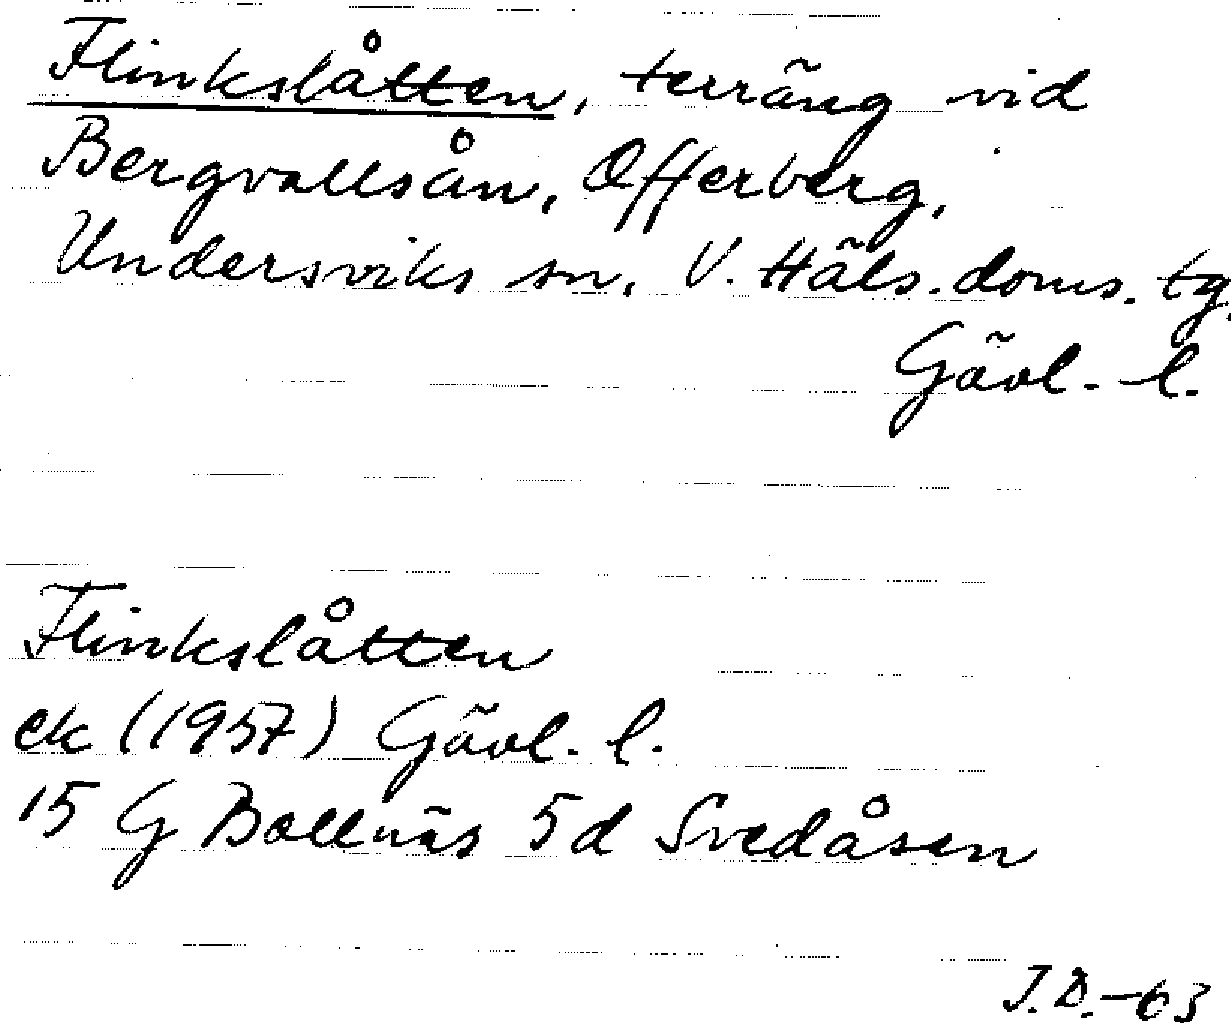 Flinkslåtten, terräng vid
Bergvallsån, Offerberg,
Undersviks sn, V. Häls. doms. tg,
Gävl. l.
Flinkslåtten
ek (1957) Gävl. l.
15 G Bollnäs 5d Svedåsen
J.D.-63